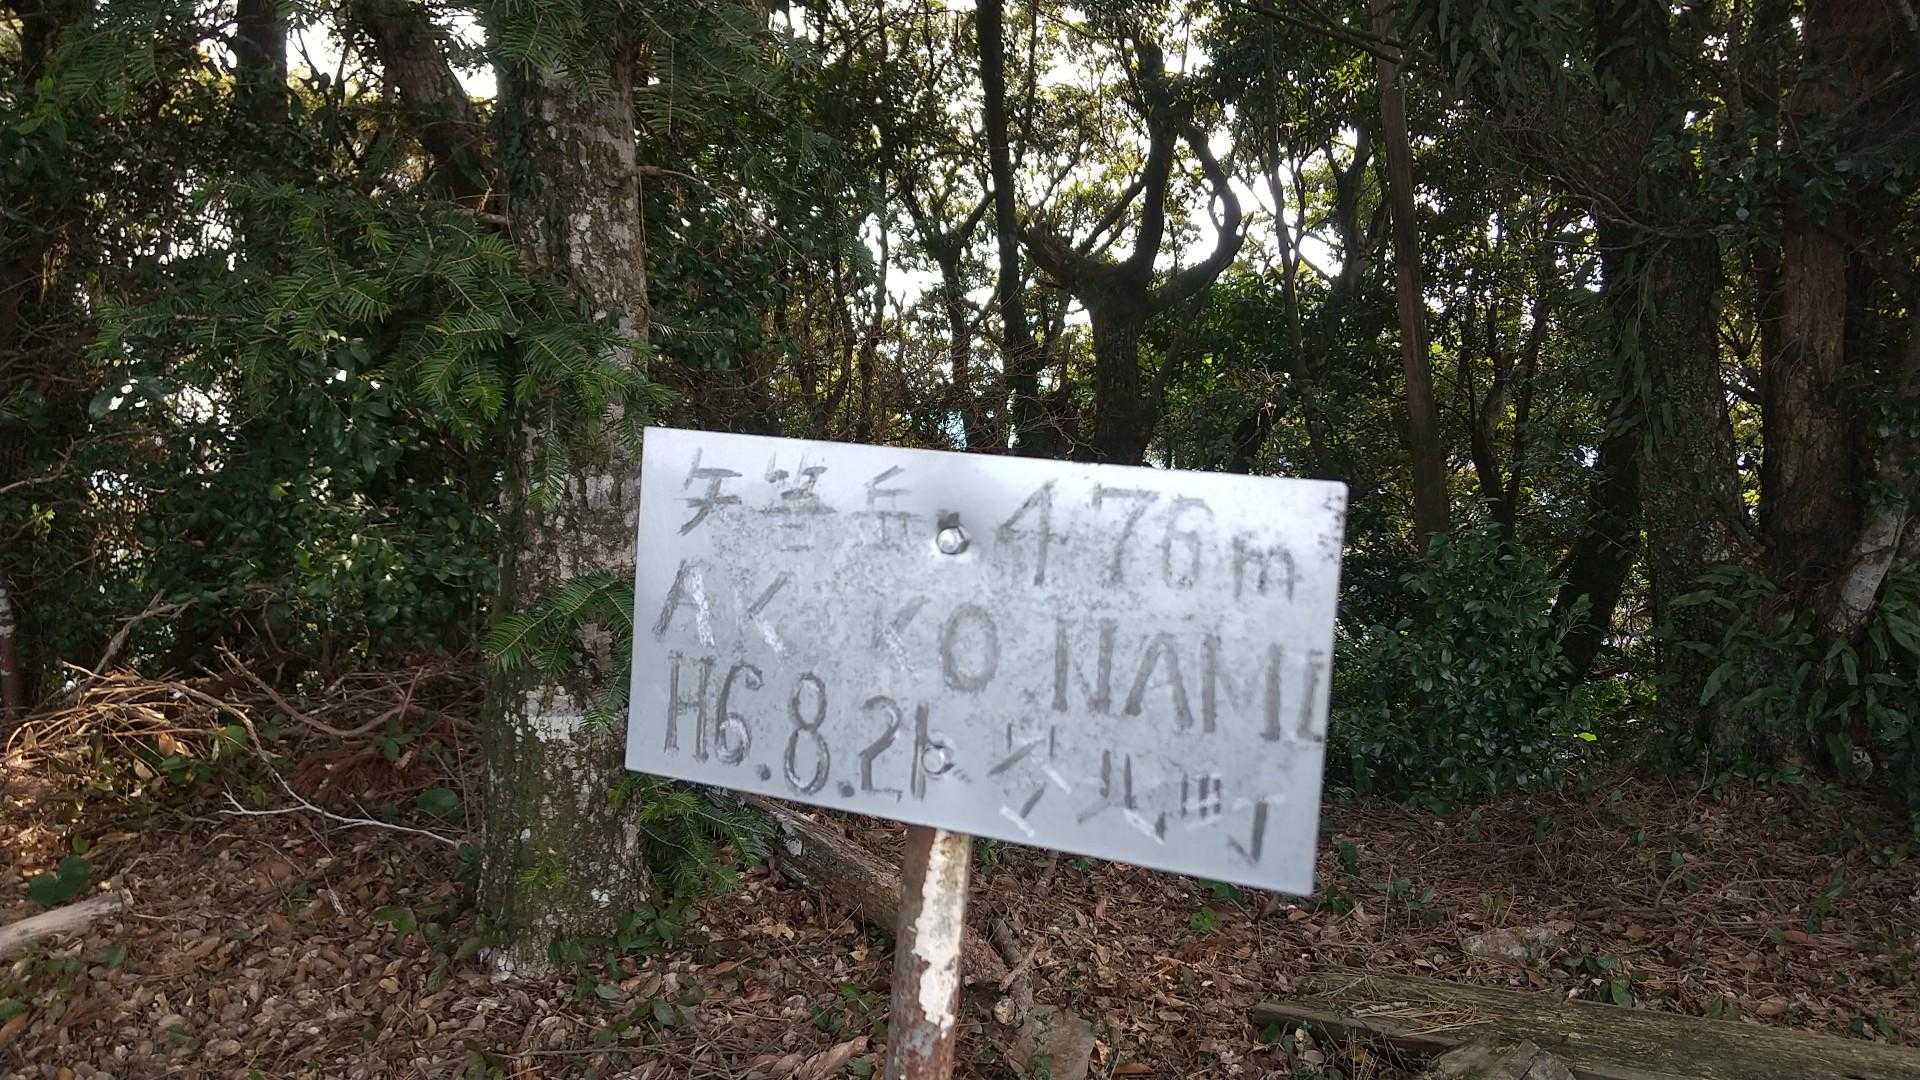 矢筈岳 476m
AK KONAMI
H6.8.21 苓北町